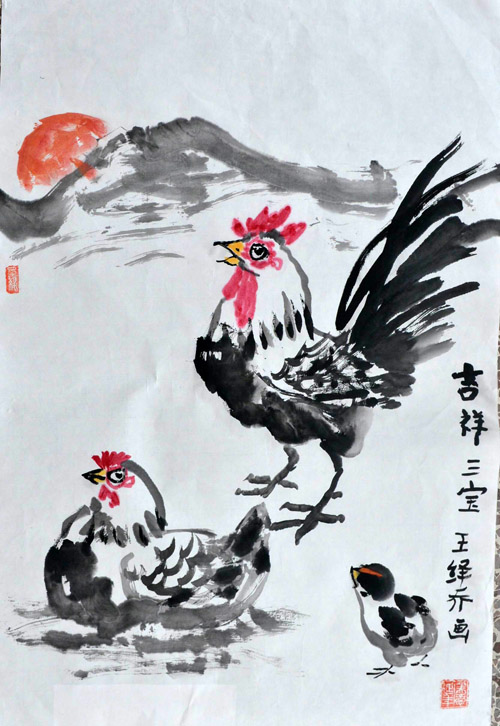 吉祥三宝 王绎乔画